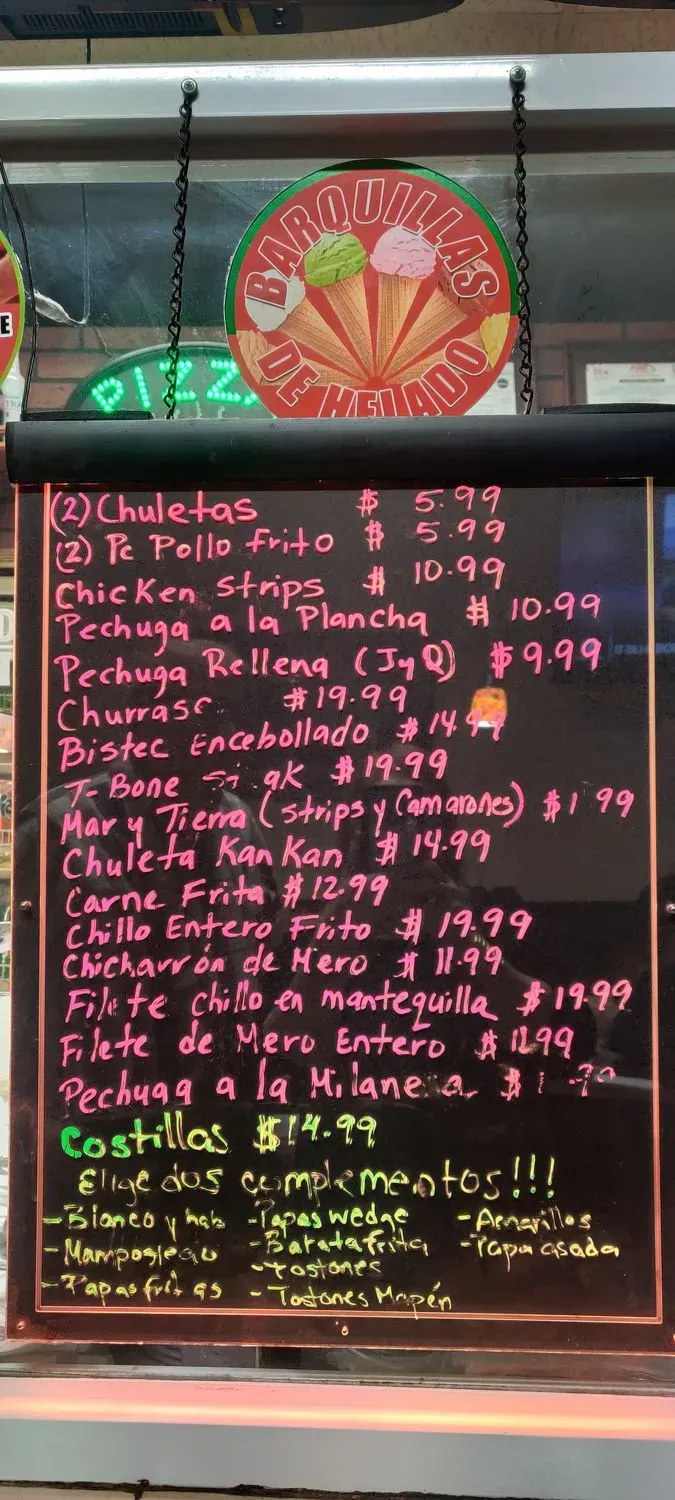 BARQUILLAS
DE HELADO
PIZZ
E
(2) Chuletas $ 5.99
(2) Pc Pollo frito $ 5.99
Chicken strips $ 10.99
Pechuga a la Plancha $ 10.99
Pechuga Rellena (JyQ) $ 9.99
Churrasc $19.99
Bistec Encebollado $ 14.99
T-Bone $19.99
Mar y Tierra (strips y Camarones)
Chuleta Kan Kan $ 14.99
Carne Frita $ 12.99
Chillo Entero Frito $ 19.99
Chicharrón de Mero $ 11.99
Filete chillo en mantequilla $ 19.99
Filete de Mero Entero $ 11.99
Pechuga a la Milanesa
Costillas $14.99
Elige dos complementos!!!
-Blanco y hab -Papas wedge -Amarillos
-Mamposteao -Batata frita -Papa asada
-Papas fritas -tostones
-Tostones Mapén